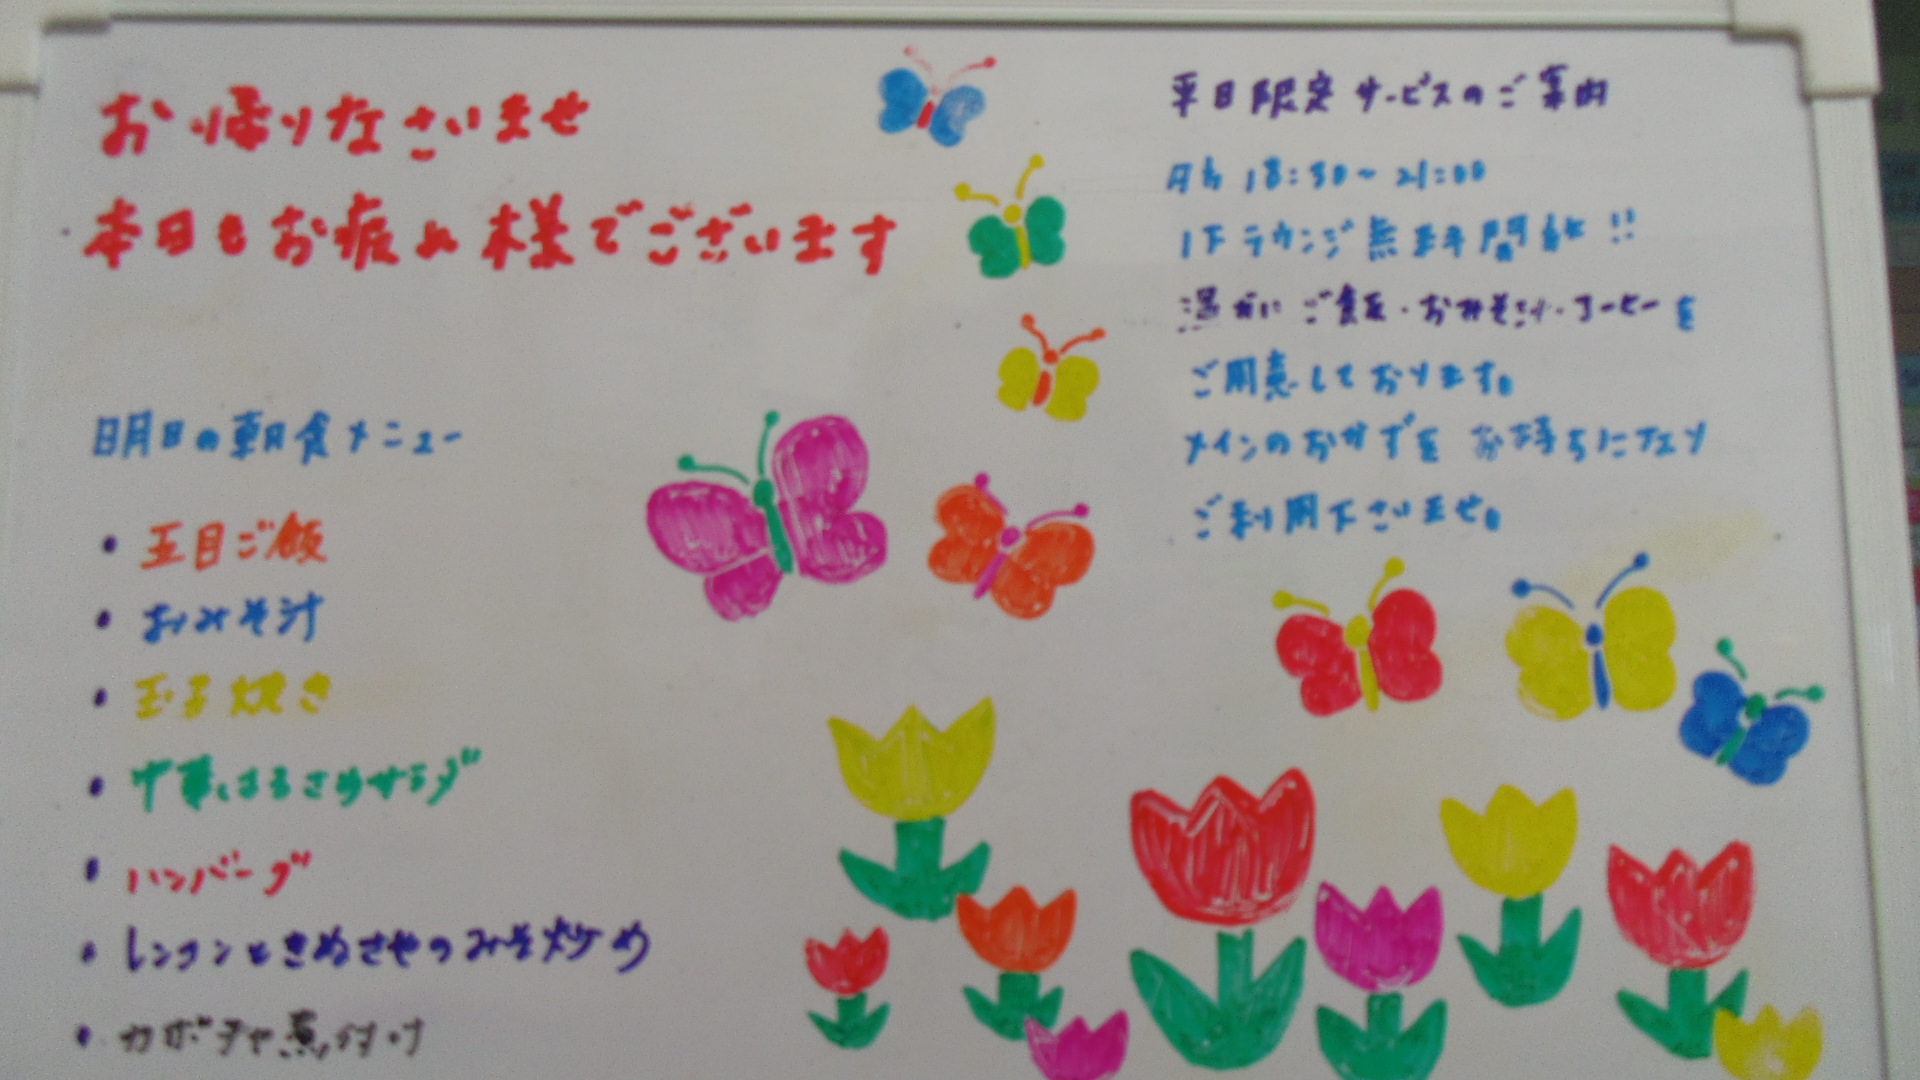 お帰りなさいませ
本日もお疲れ様でございます
明日の朝食メニュー
・五目ご飯
・おみそ汁
・玉子焼き
・中華はるさめサラダ
・ハンバーグ
・レンコンときぬさやのみそ炒め
・カボチャ煮付け
平日限定サービスのご案内
夕方 18:30~21:00
1F ラウンジ無料開放!!
温かいご飯・おみそ汁・コーヒーを
ご用意しております。
メインのおかずをお持ちになり
ご利用下さいませ。